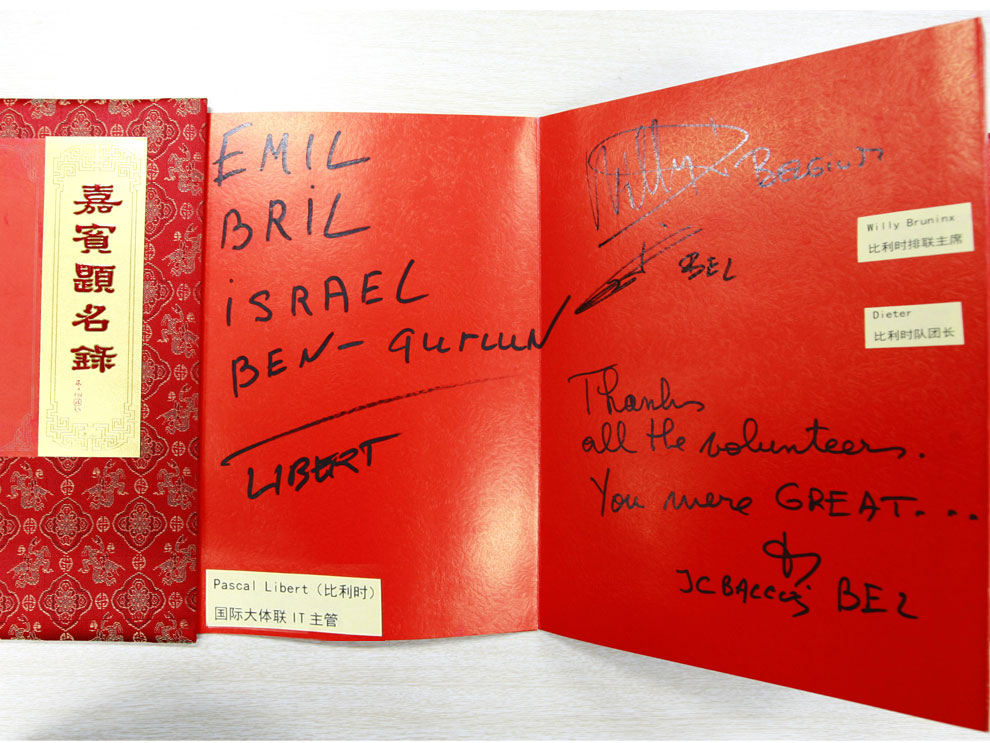 嘉賓題名錄
EMIL
BRIL
iSRAEL
BEN-GURIUN
LIBERT
Pascal Libert (比利时)
国际大体联IT主管
Willy BELGIUM
Willy Bruninx
比利时排联主席
BEL
Dieter
比利时队团长
Thanks
all the volunteers.
You were GREAT...
JC BACCUS BEL